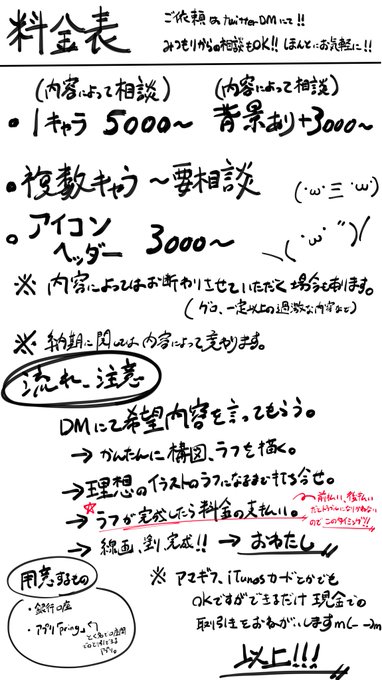 料金表
ご依頼は twitter DMにて!!
みつもりからの相談もOK!! ほんとにお気軽に!!
(内容によって相談)
(内容によって相談)
・1キャラ 5000〜
背景あり+3000〜
・複数キャラ 〜要相談
(・ω・三・ω・)
・アイコン
ヘッダー 3000〜
\(・ω・")/
※ 内容によってはお断りさせていただく場合もあります。
(グロ、一定以上の過激な内容など)
※ 納期に関しては内容によって変わります。
流れ、注意
DMにて希望内容を言ってもらう。
→ かんたんに構図、ラフを描く。
→ 理想のイラストのラフになるまで打ち合せ。
☆
→ ラフが完成したら料金の支払い。
前払い、後払い
だとトラブルになりかねない
のでこのタイミング!!
→ 線画、塗り、完成!! → おわたし
用意するもの
・銀行口座
・アプリ「pring」
※ アマギフ、iTunesカードとかでも
OKですができるだけ現金での
取引きをおねがいしますm(--)m
以上!!!